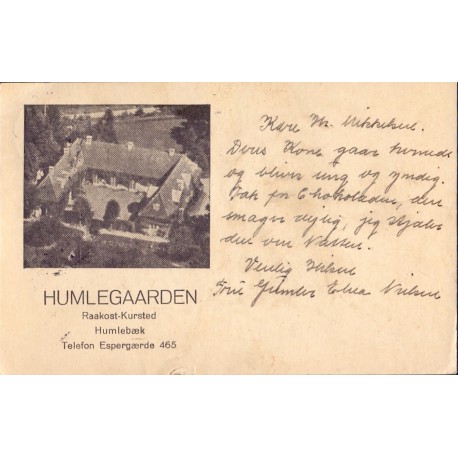 HUMLEGAARDEN
Raakost-Kursted
Humlebæk
Telefon Espergærde 465
Kære Hr. Mikkelsen.
Deres Kone gaar herude
og bliver ung og yndig.
Tak for Chokoladen, den
smager dejlig, jeg stjæler
den om Natten.
Venlig Hilsen
Fru Elna Nielsen